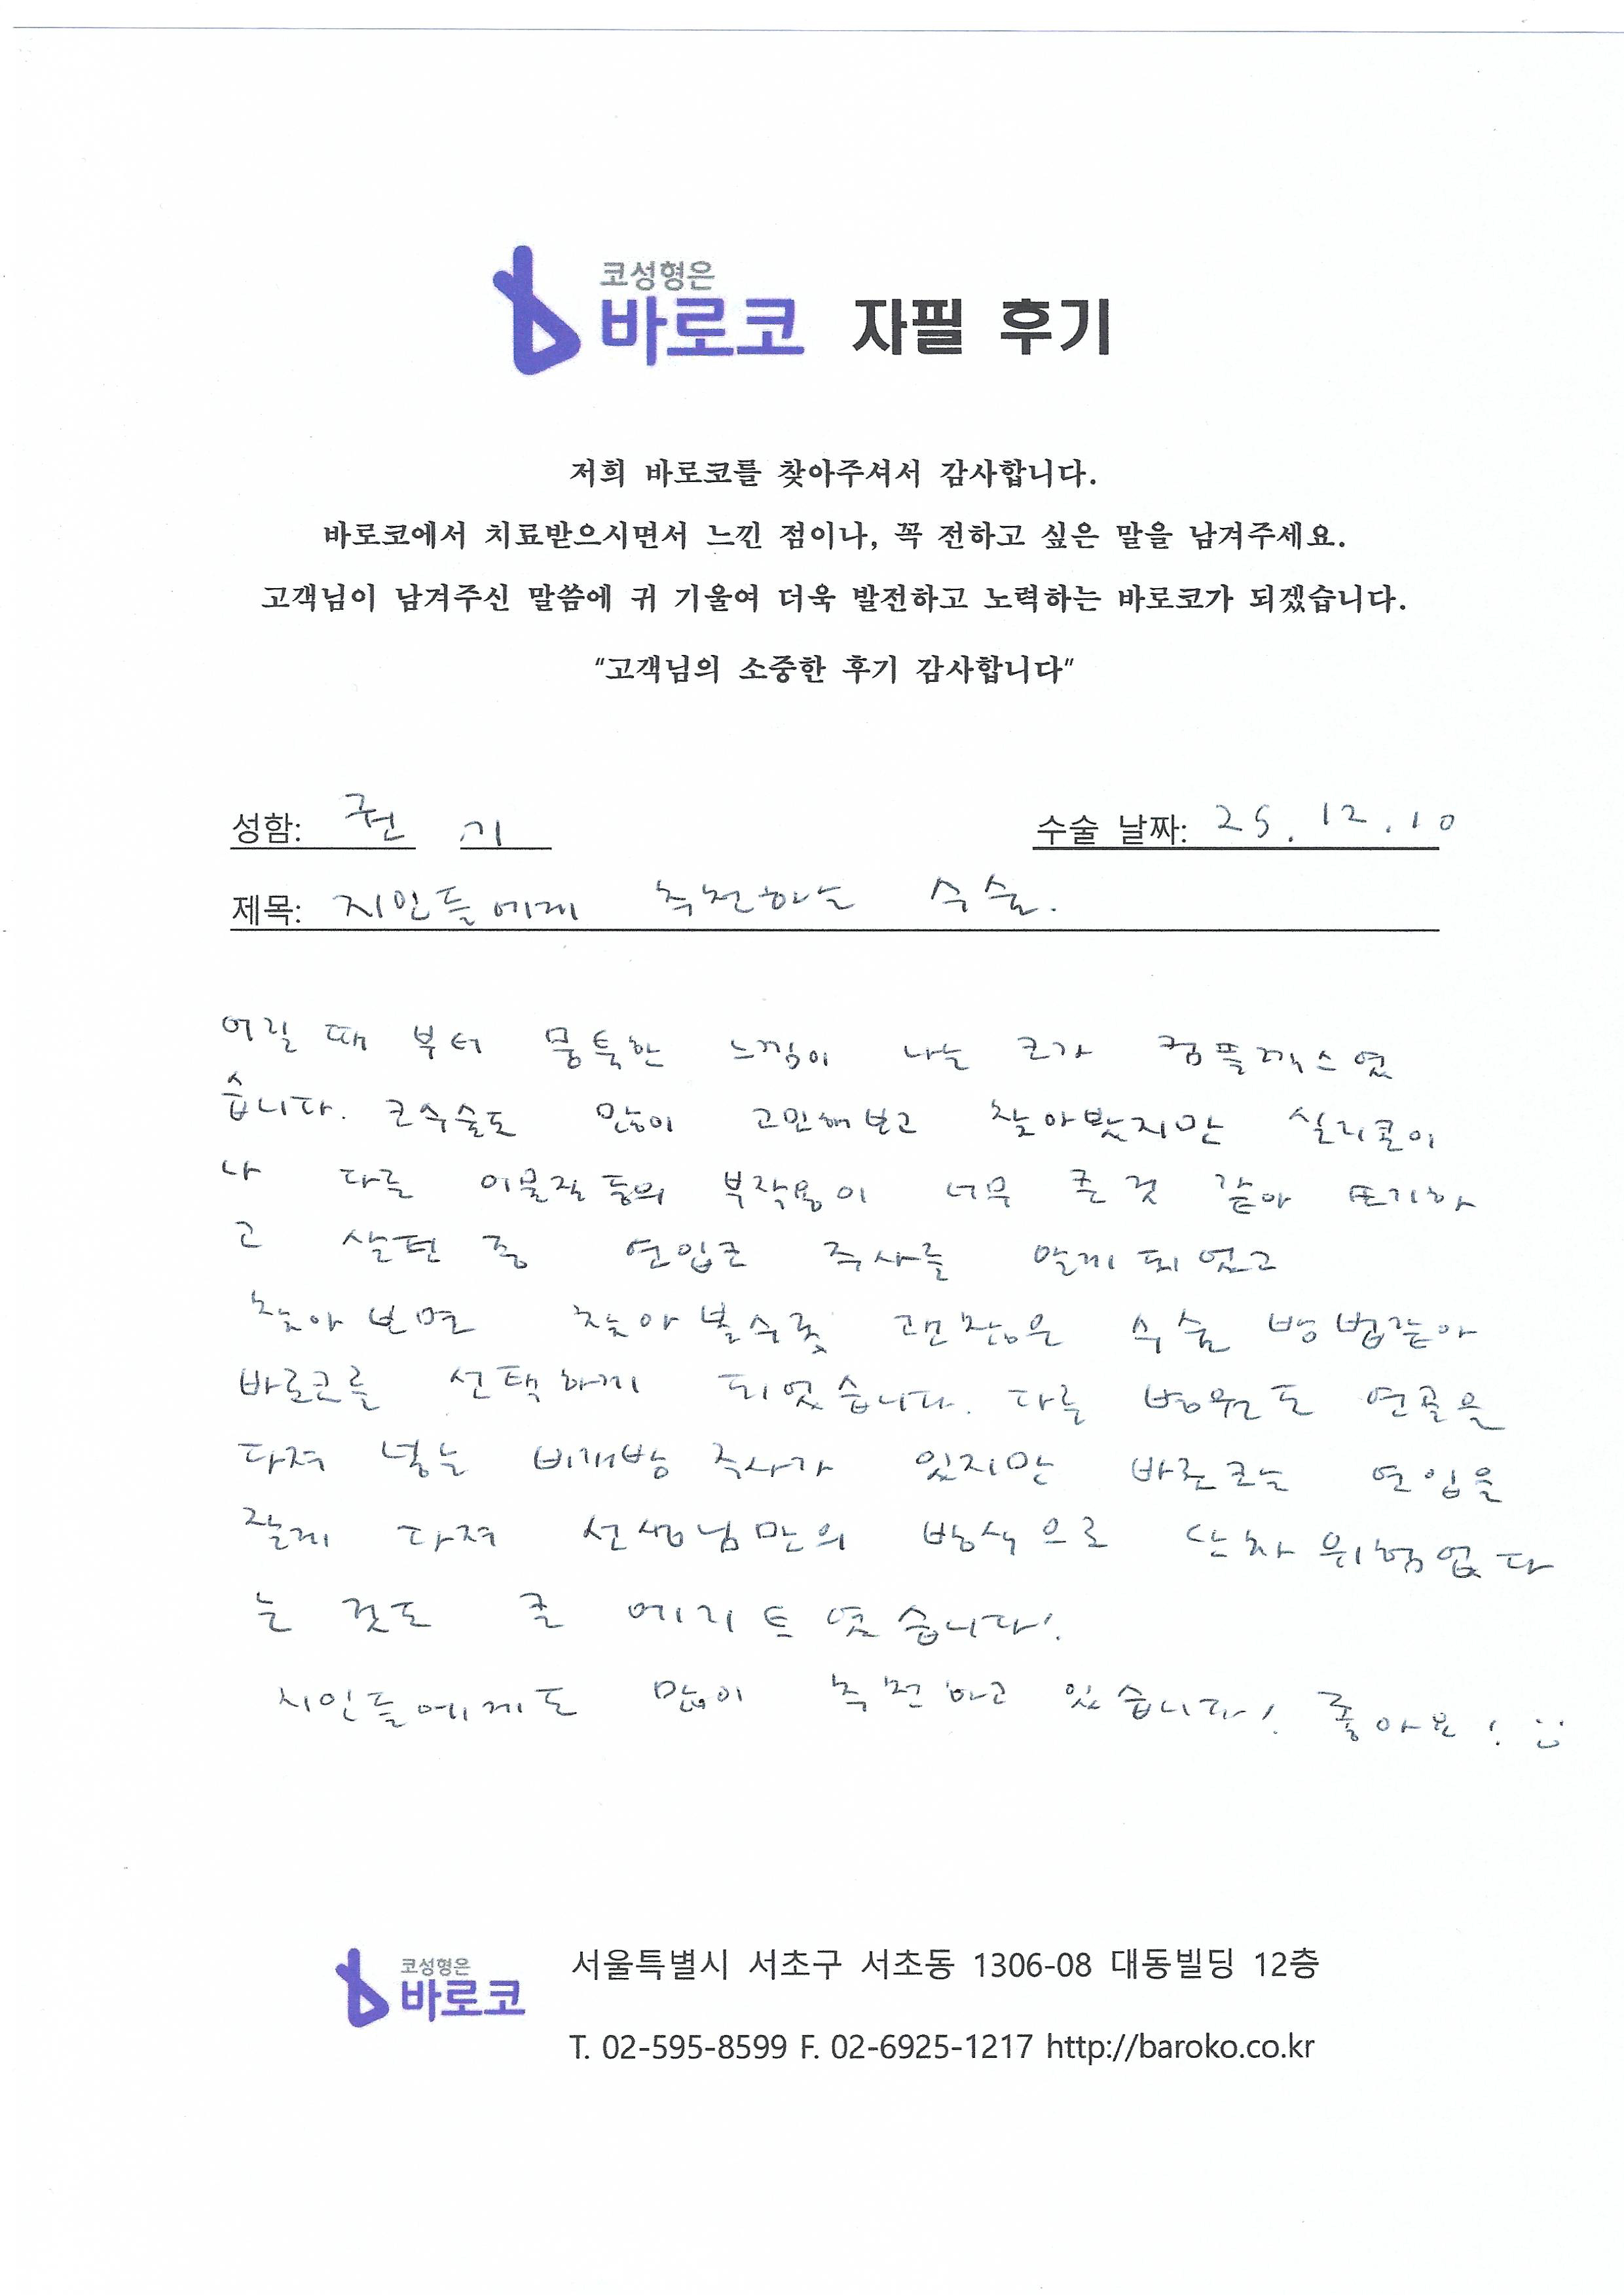 코성형은
바로코 자필 후기
저희 바로코를 찾아주셔서 감사합니다.
바로코에서 치료받으시면서 느낀 점이나, 꼭 전하고 싶은 말을 남겨주세요.
고객님이 남겨주신 말씀에 귀 기울여 더욱 발전하고 노력하는 바로코가 되겠습니다.
"고객님의 소중한 후기 감사합니다"
성함: 권 기 수술 날짜: 25.12.10
제목: 지인들에게 추천하는 수술.
어릴 때 부터 뭉툭한 느낌이 나는 코가 컴플렉스였
습니다. 코수술도 많이 고민해보고 찾아봤지만 실리콘이
나 다른 이물질 등의 부작용이 너무 큰 것 같아 포기하
고 살던 중 연입코 주사를 알게 되었고
찾아보면 찾아볼수록 괜찮은 수술 방법같아
바로코를 선택하게 되었습니다. 다른 병원도 연골을
다져 넣는 비개방 주사가 있지만 바로코는 연입을
잘게 다져 선생님만의 방식으로 단차 위험없다
는 것도 큰 메리트였습니다!
지인들에게도 많이 추천하고 있습니다! 좋아요! :)
코성형은
바로코
서울특별시 서초구 서초동 1306-08 대동빌딩 12층
T. 02-595-8599 F. 02-6925-1217 http://baroko.co.kr